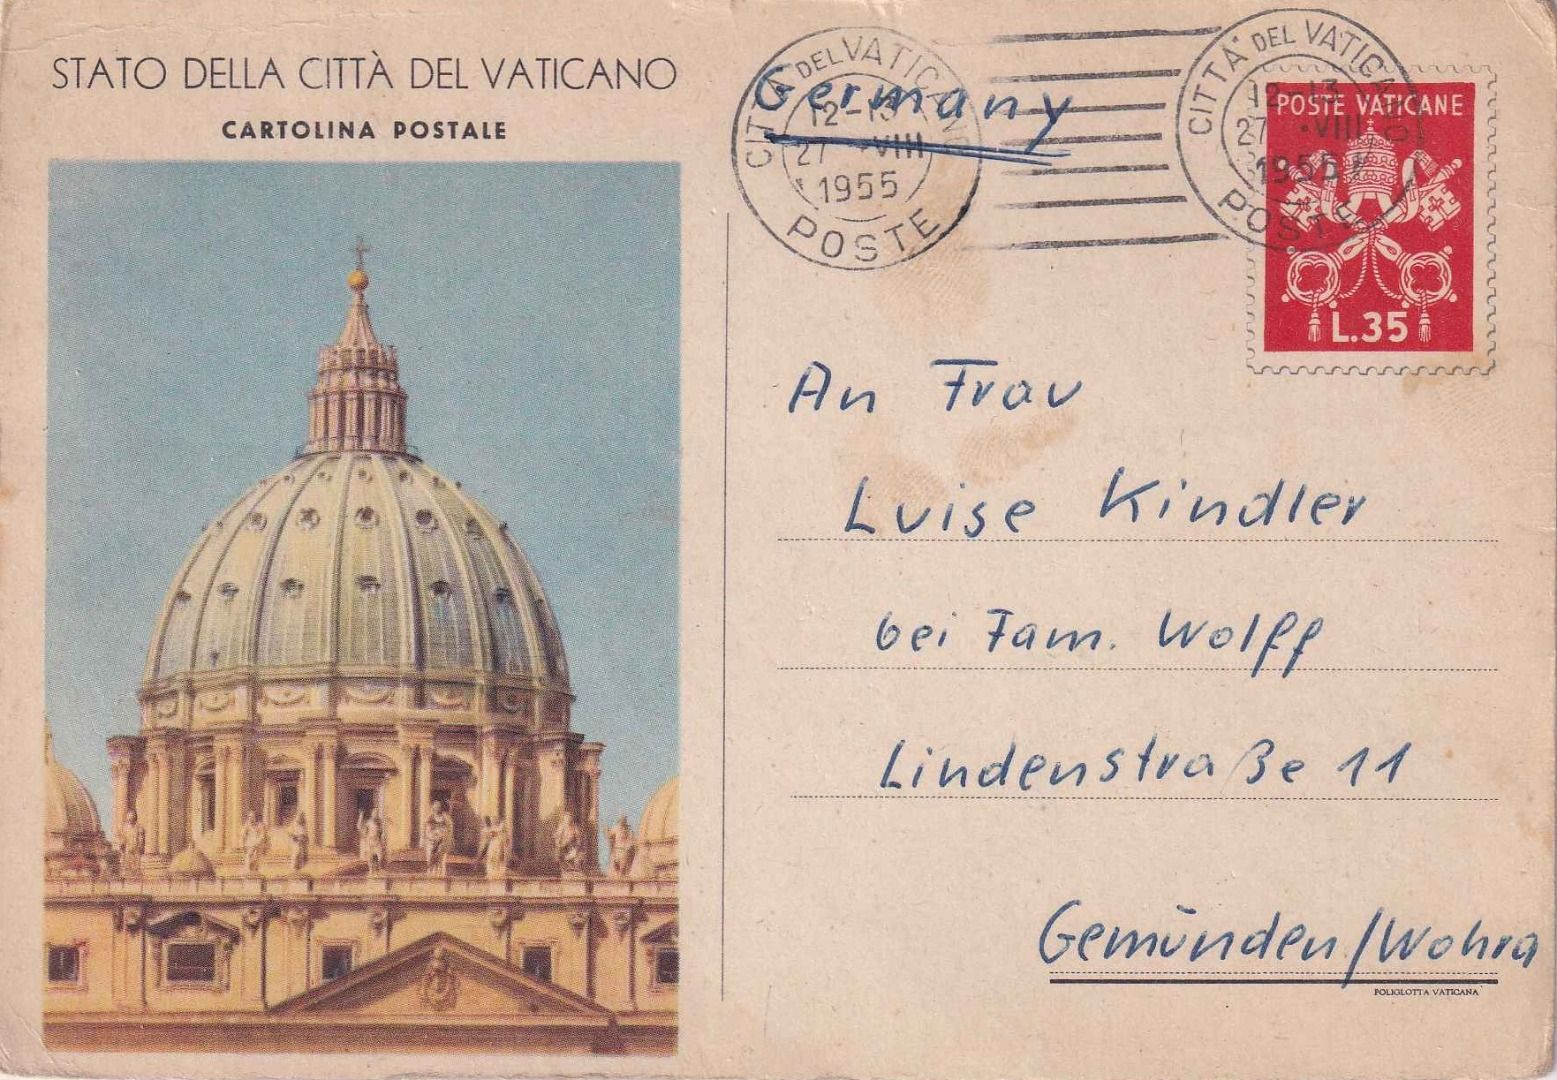 STATO DELLA CITTÀ DEL VATICANO
CARTOLINA POSTALE
Germany
CITTA' DEL VATICANO
12-13
27 ·VIII
1955
POSTE
CITTA' DEL VATICANO
12-13
27 ·VIII
1955
POSTE
POSTE VATICANE
L.35
An Frau
Luise Kindler
bei Fam. Wolff
Lindenstraße 11
Gemünden/Wohra
POLIGLOTTA VATICANA